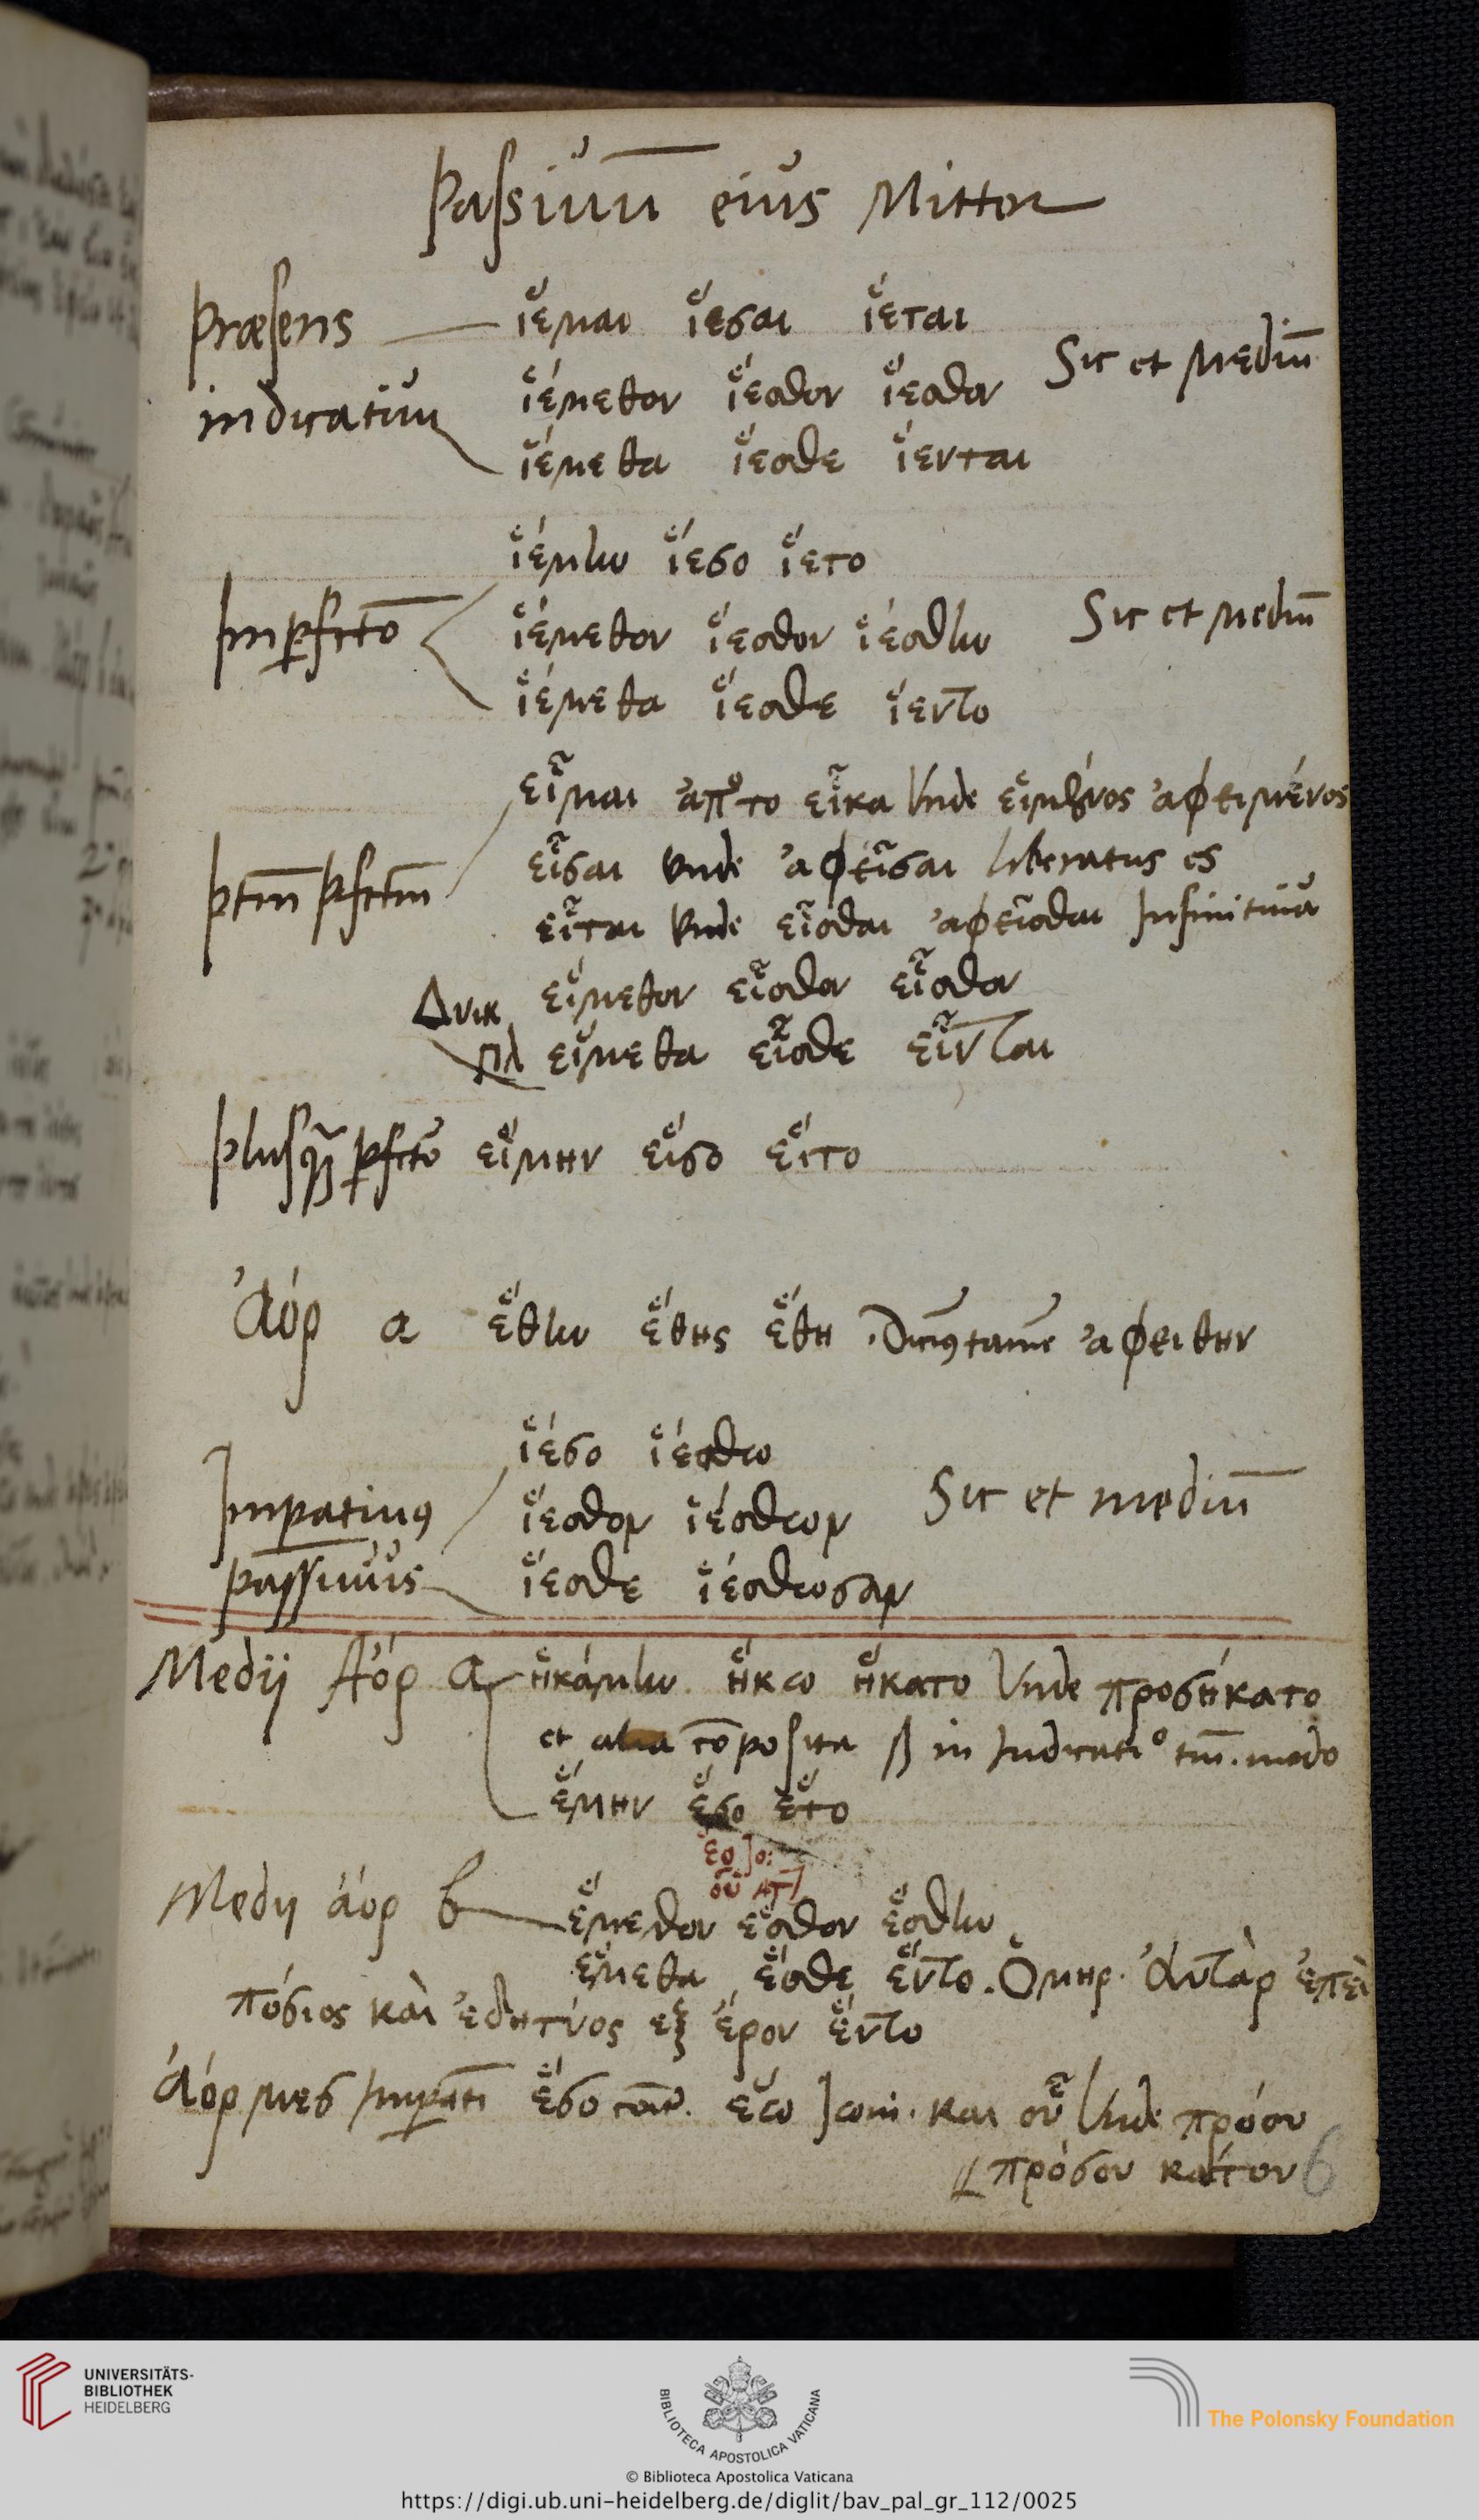 Passiuū eius Mittor
Præsens ἵεμαι ἵεσαι ἵεται
indicatiuū ἱέμεθον ἵεσθον ἵεσθον Sic et Mediū
ἱέμεθα ἵεσθε ἵενται
ἱέμην ἵεσο ἵετο
Imꝑfctō ἱέμεθον ἵεσθον ἱέσθην Sic et Mediū
ἱέμεθα ἵεσθε ἵεντο
εἷμαι ἀπὸ το εἷκα Vnde εἱμένος ἀφειμένος
ptm̄ pfctm̄ εἷσαι Vnde ἀφεῖσαι liberatus es
εἷται Vnde εἷσθαι ἀφεῖσθαι Infinitiuū
Δυικ εἵμεθον εἷσθον εἷσθον
πλ εἵμεθα εἷσθε εἷνται
plusq̃ ꝑfctō εἵμην εἵσο εἵτο
ἀόρ α ἕθην ἕθης ἕθη ἀφειθην
ἱέσο ἱέσθω
Imꝑatiuꝰ ἵεσθον ἱέσθων Sic et mediū
passiuus ἵεσθε ἱέσθωσαν
Medij Αόρ α ἡκάμην ἥκω ἥκατο Vnde προσήκατο
et alia cōposita in Indicatiᵒ tm̄. modo
ἕμην ἕσο ἕτο
ἕο
οὗ
Medij ἀόρ β ἕμεθον ἕσθον ἕσθην
ἕμεθα ἕσθε ἕντο. Ὅμηρ. Ἀυτὰρ ἐπεὶ
πόσιος καὶ ἐδητύος εξ ἔρον ἕντο
ἀόρ μεσ Imꝑati ἕσο ἕω και οὗ Vnde πρόου
πρόσου
6
UNIVERSITÄTS-
BIBLIOTHEK
HEIDELBERG
BIBLIOTECA APOSTOLICA VATICANA
The Polonsky Foundation
© Biblioteca Apostolica Vaticana
https://digi.ub.uni-heidelberg.de/diglit/bav_pal_gr_112/0025